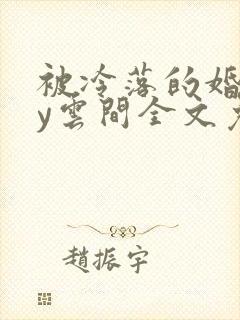 被冷落的婚
y雲間全文
趙振宇